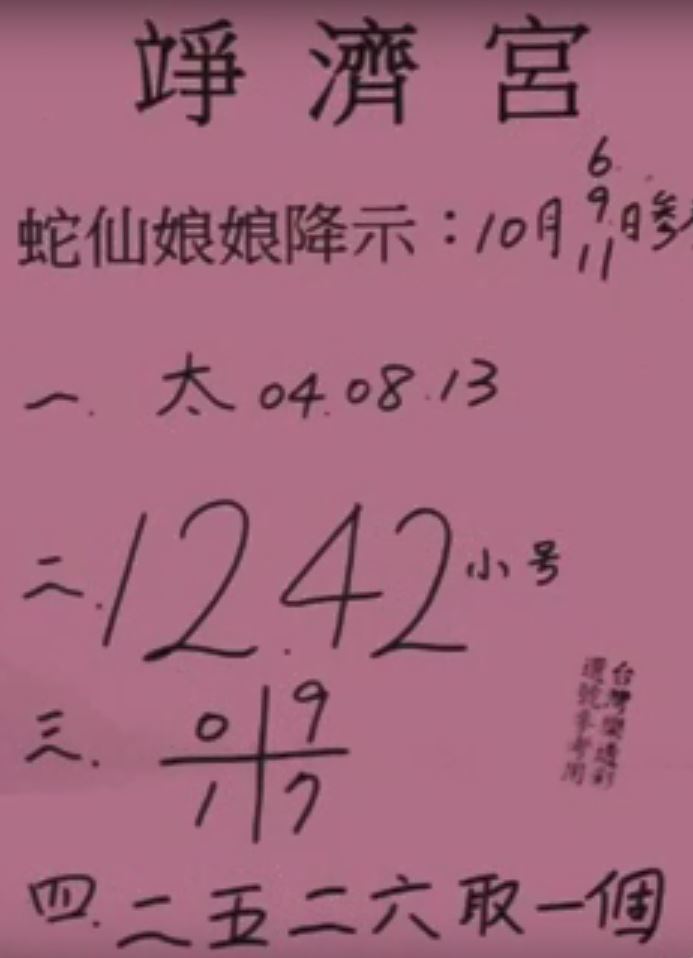 竫濟宮
蛇仙娘娘降示：10月6.9.11日參
一. 太 04.08.13
二. 12.42小号
三. 0 9
1 7
四. 二五二六取一個
台灣樂透彩
選號參考用